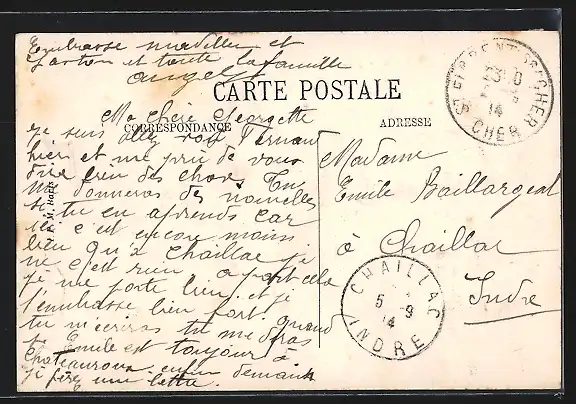 Embrasse et
Gaston et toute la famille
CARTE POSTALE
CORRESPONDANCE
ADRESSE
Ma Chère Georgette
je suis allé voir Fernand
hier et me prie de vous
dire bien des choses Tu
me donneras des nouvelles
si tu en aprends car
ici c'est encore moins
bien qu'a Chaillac je
ne c'est rien apart cela
je me porte bien et je
t'embrasse bien fort quand
tu m'ecriras tu me diras
si Emile est toujour à
Chateauroux enfin demain
je ferez une lettre
Madame
Emile Baillargeat
à Chaillac
Indre
CHER
14
CHAILLAC
5 9
14
INDRE